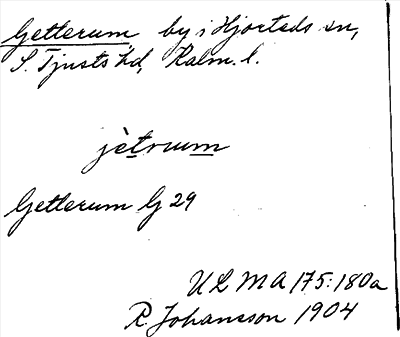 Getterum, by i Hjorteds sn,
S. Tjusts hd, Kalm. l.
jètruum
Getterum G 29
ULMA 175:180a
R. Johansson 1904